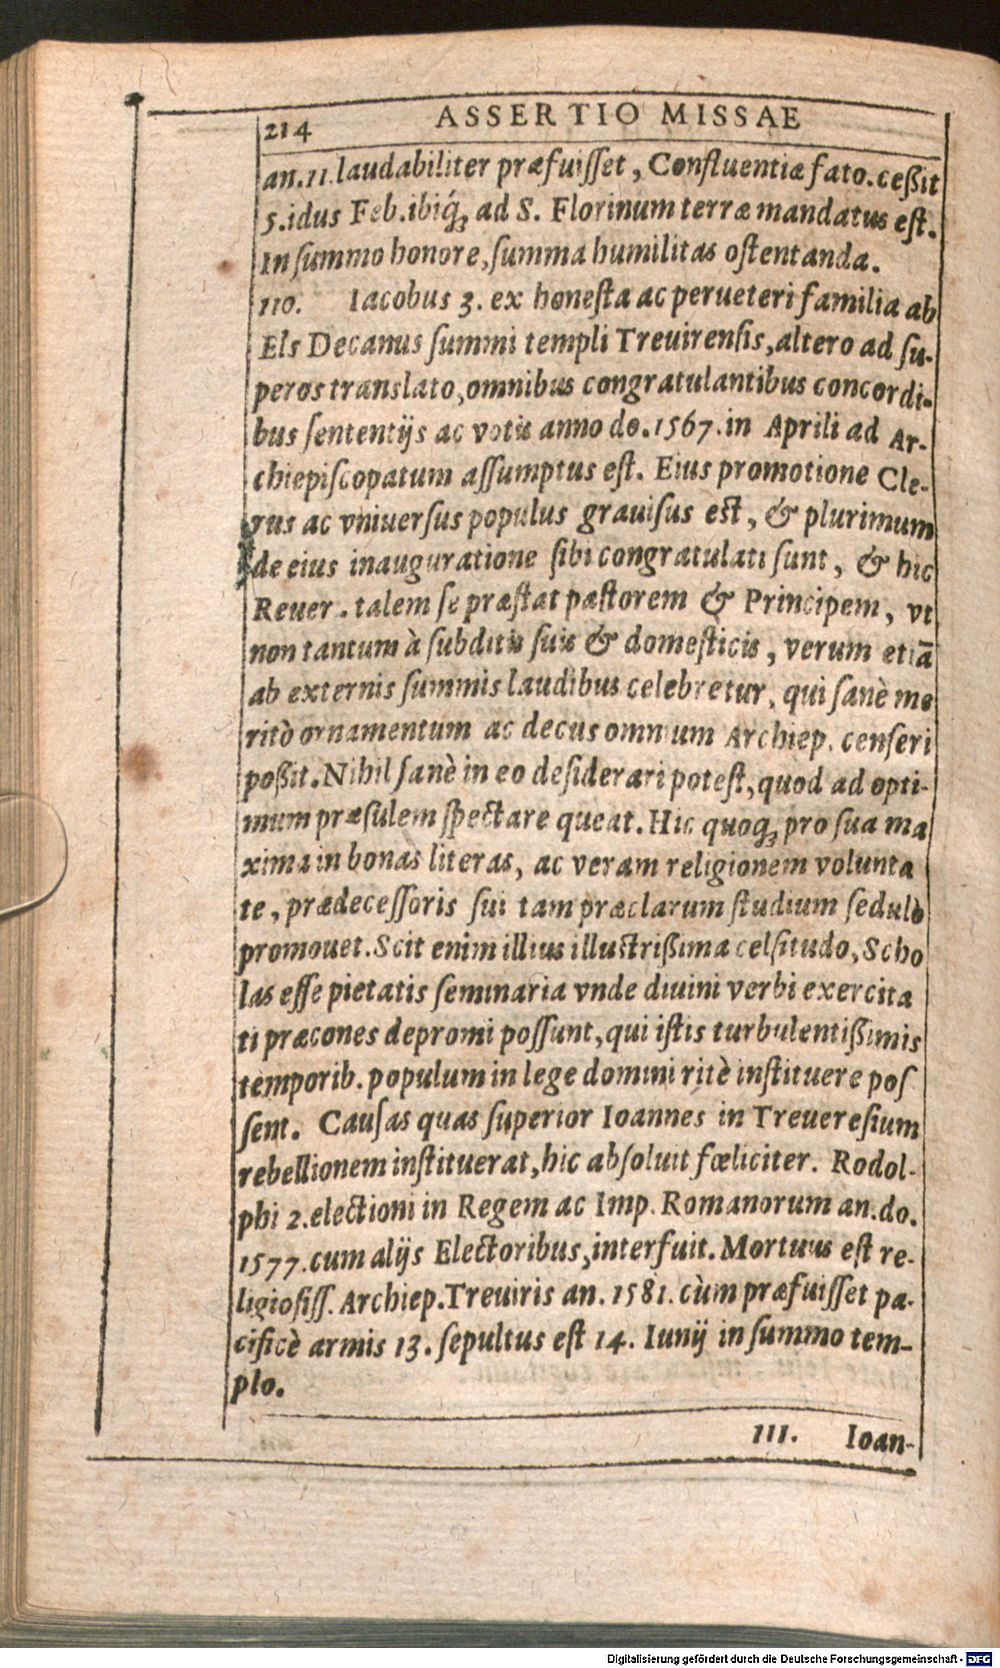 214 ASSERTIO MISSAE
an.11.laudabiliter præfuiſſet, Confluentiæ fato.ceßit
5.idus Feb.ibiq́ꝫ ad S. Florinum terræ mandatus eſt.
In ſummo honore, ſumma humilitas oſtentanda.
110. Iacobus 3. ex honeſta ac perueteri familia ab
Els Decanus ſummi templi Treuirenſis, altero ad ſu-
peros translato, omnibus congratulantibus concordi-
bus ſententijs ac votis anno do.1567.in Aprili ad Ar-
chiepiſcopatum aſſumptus eſt. Eius promotione Cle-
rus ac vniuerſus populus grauiſus est, & plurimum
de eius inauguratione ſibi congratulati ſunt, & hic
Reuer. talem ſe præſtat paſtorem & Principem, vt
non tantum à ſubditis ſuis & domeſticis, verum etiã
ab externis ſummis laudibus celebretur, qui ſanè me
ritò ornamentum ac decus omnium Archiep. cenſeri
poßit. Nihil ſanè in eo deſiderari poteſt, quod ad opti-
mum præſulem ſpectare queat. Hic quoqꝫ pro ſua ma
xima in bonas literas, ac veram religionem volunta
te, prædeceſſoris ſui tam præclarum ſtudium ſedulò
promouet. Scit enim illius illuctrißima celſitudo, Scho
las eſſe pietatis ſeminaria vnde diuini verbi exercita
ti præcones depromi poſſunt, qui iſtis turbulentißimis
temporib. populum in lege domini ritè inſtituere poſ
ſent. Cauſas quas ſuperior Ioannes in Treuereſium
rebellionem inſtituerat, hic abſoluit fœliciter. Rodol-
phi 2.electioni in Regem ac Imp. Romanorum an.do.
1577.cum alijs Electoribus, interfuit. Mortuus eſt re-
ligioſiſſ. Archiep.Treuiris an. 1581. cùm præfuiſſet pa-
cificè armis 13. ſepultus eſt 14. Iunij in ſummo tem-
plo.
111. Ioan-
Digitalisierung gefördert durch die Deutsche Forschungsgemeinschaft - DFG